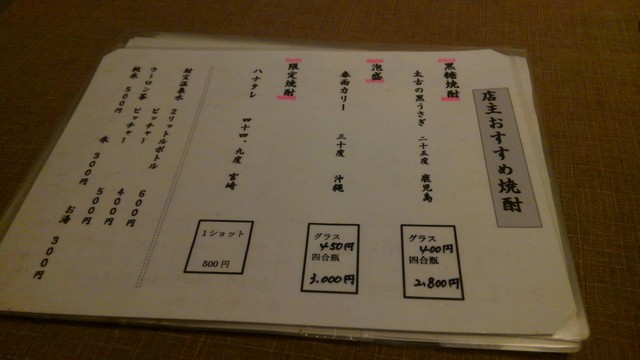 店主おすすめ焼酎
黒糖焼酎
太古の黒うさぎ 二十五度 鹿児島
グラス
400円
四合瓶
2,800円
泡盛
春雨カリー 三十度 沖縄
グラス
450円
四合瓶
3.000円
限定焼酎
ハナタレ 四十四.九度 宮崎
1ショット
500円
財宝温泉水 2リットルボトル 600円
ウーロン茶 ピッチャー 400円
純水 ピッチャー 500円
500円 氷 300円 お湯 300円